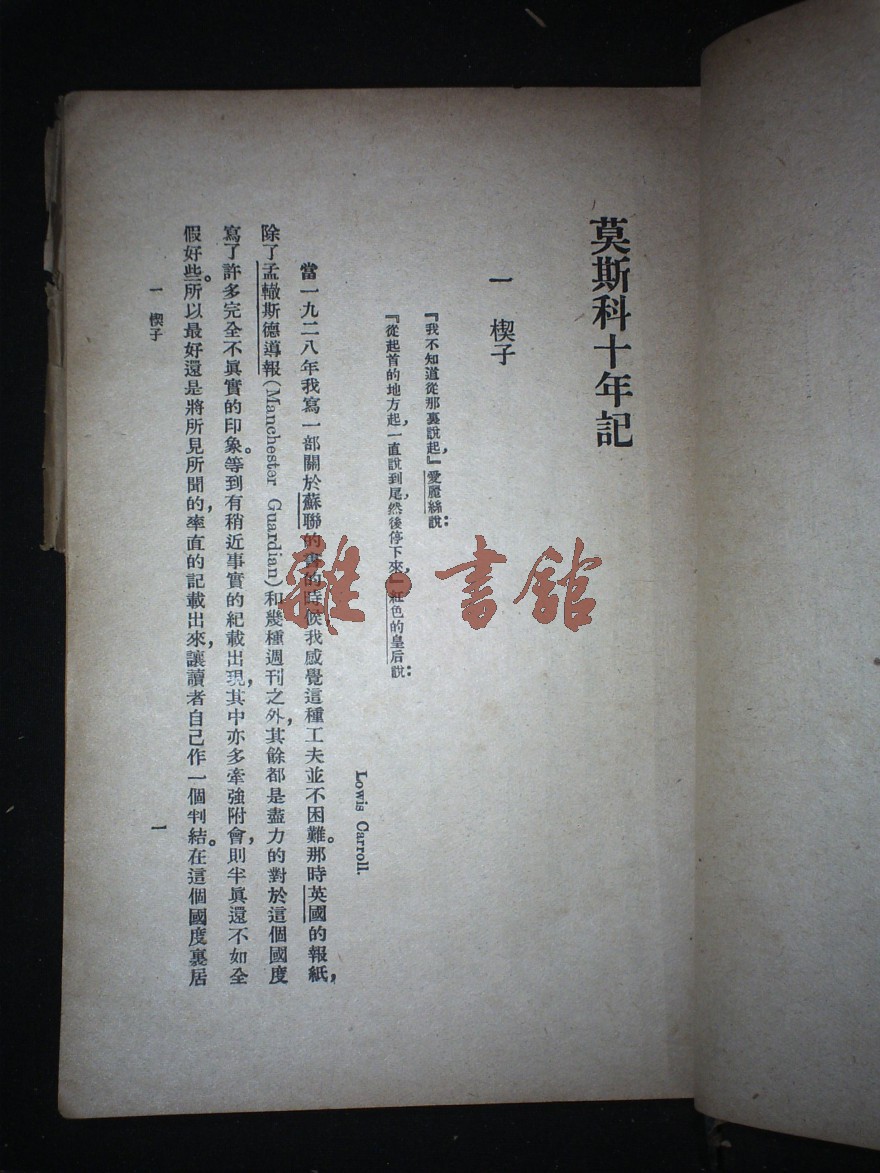 莫斯科十年記
一 楔子
『我不知道從那裏說起，』愛麗絲說：
『從起首的地方起，一直說到尾，然後停下來，』紅色的皇后說：
Lowis Carroll.
當一九二八年我寫一部關於蘇聯的書的時候，我感覺這種工夫並不困難。那時英國的報紙，
除了孟轍斯德導報(Manchester Guardian)和幾種週刊之外，其餘都是盡力的對於這個國度
寫了許多完全不眞實的印象。等到有稍近事實的紀載出現，其中亦多牽強附會，則半眞還不如全
假好些。所以最好還是將所見所聞的，率直的記載出來，讓讀者自己作一個判結。在這個國度裏居
一 楔子
一
雜·書館